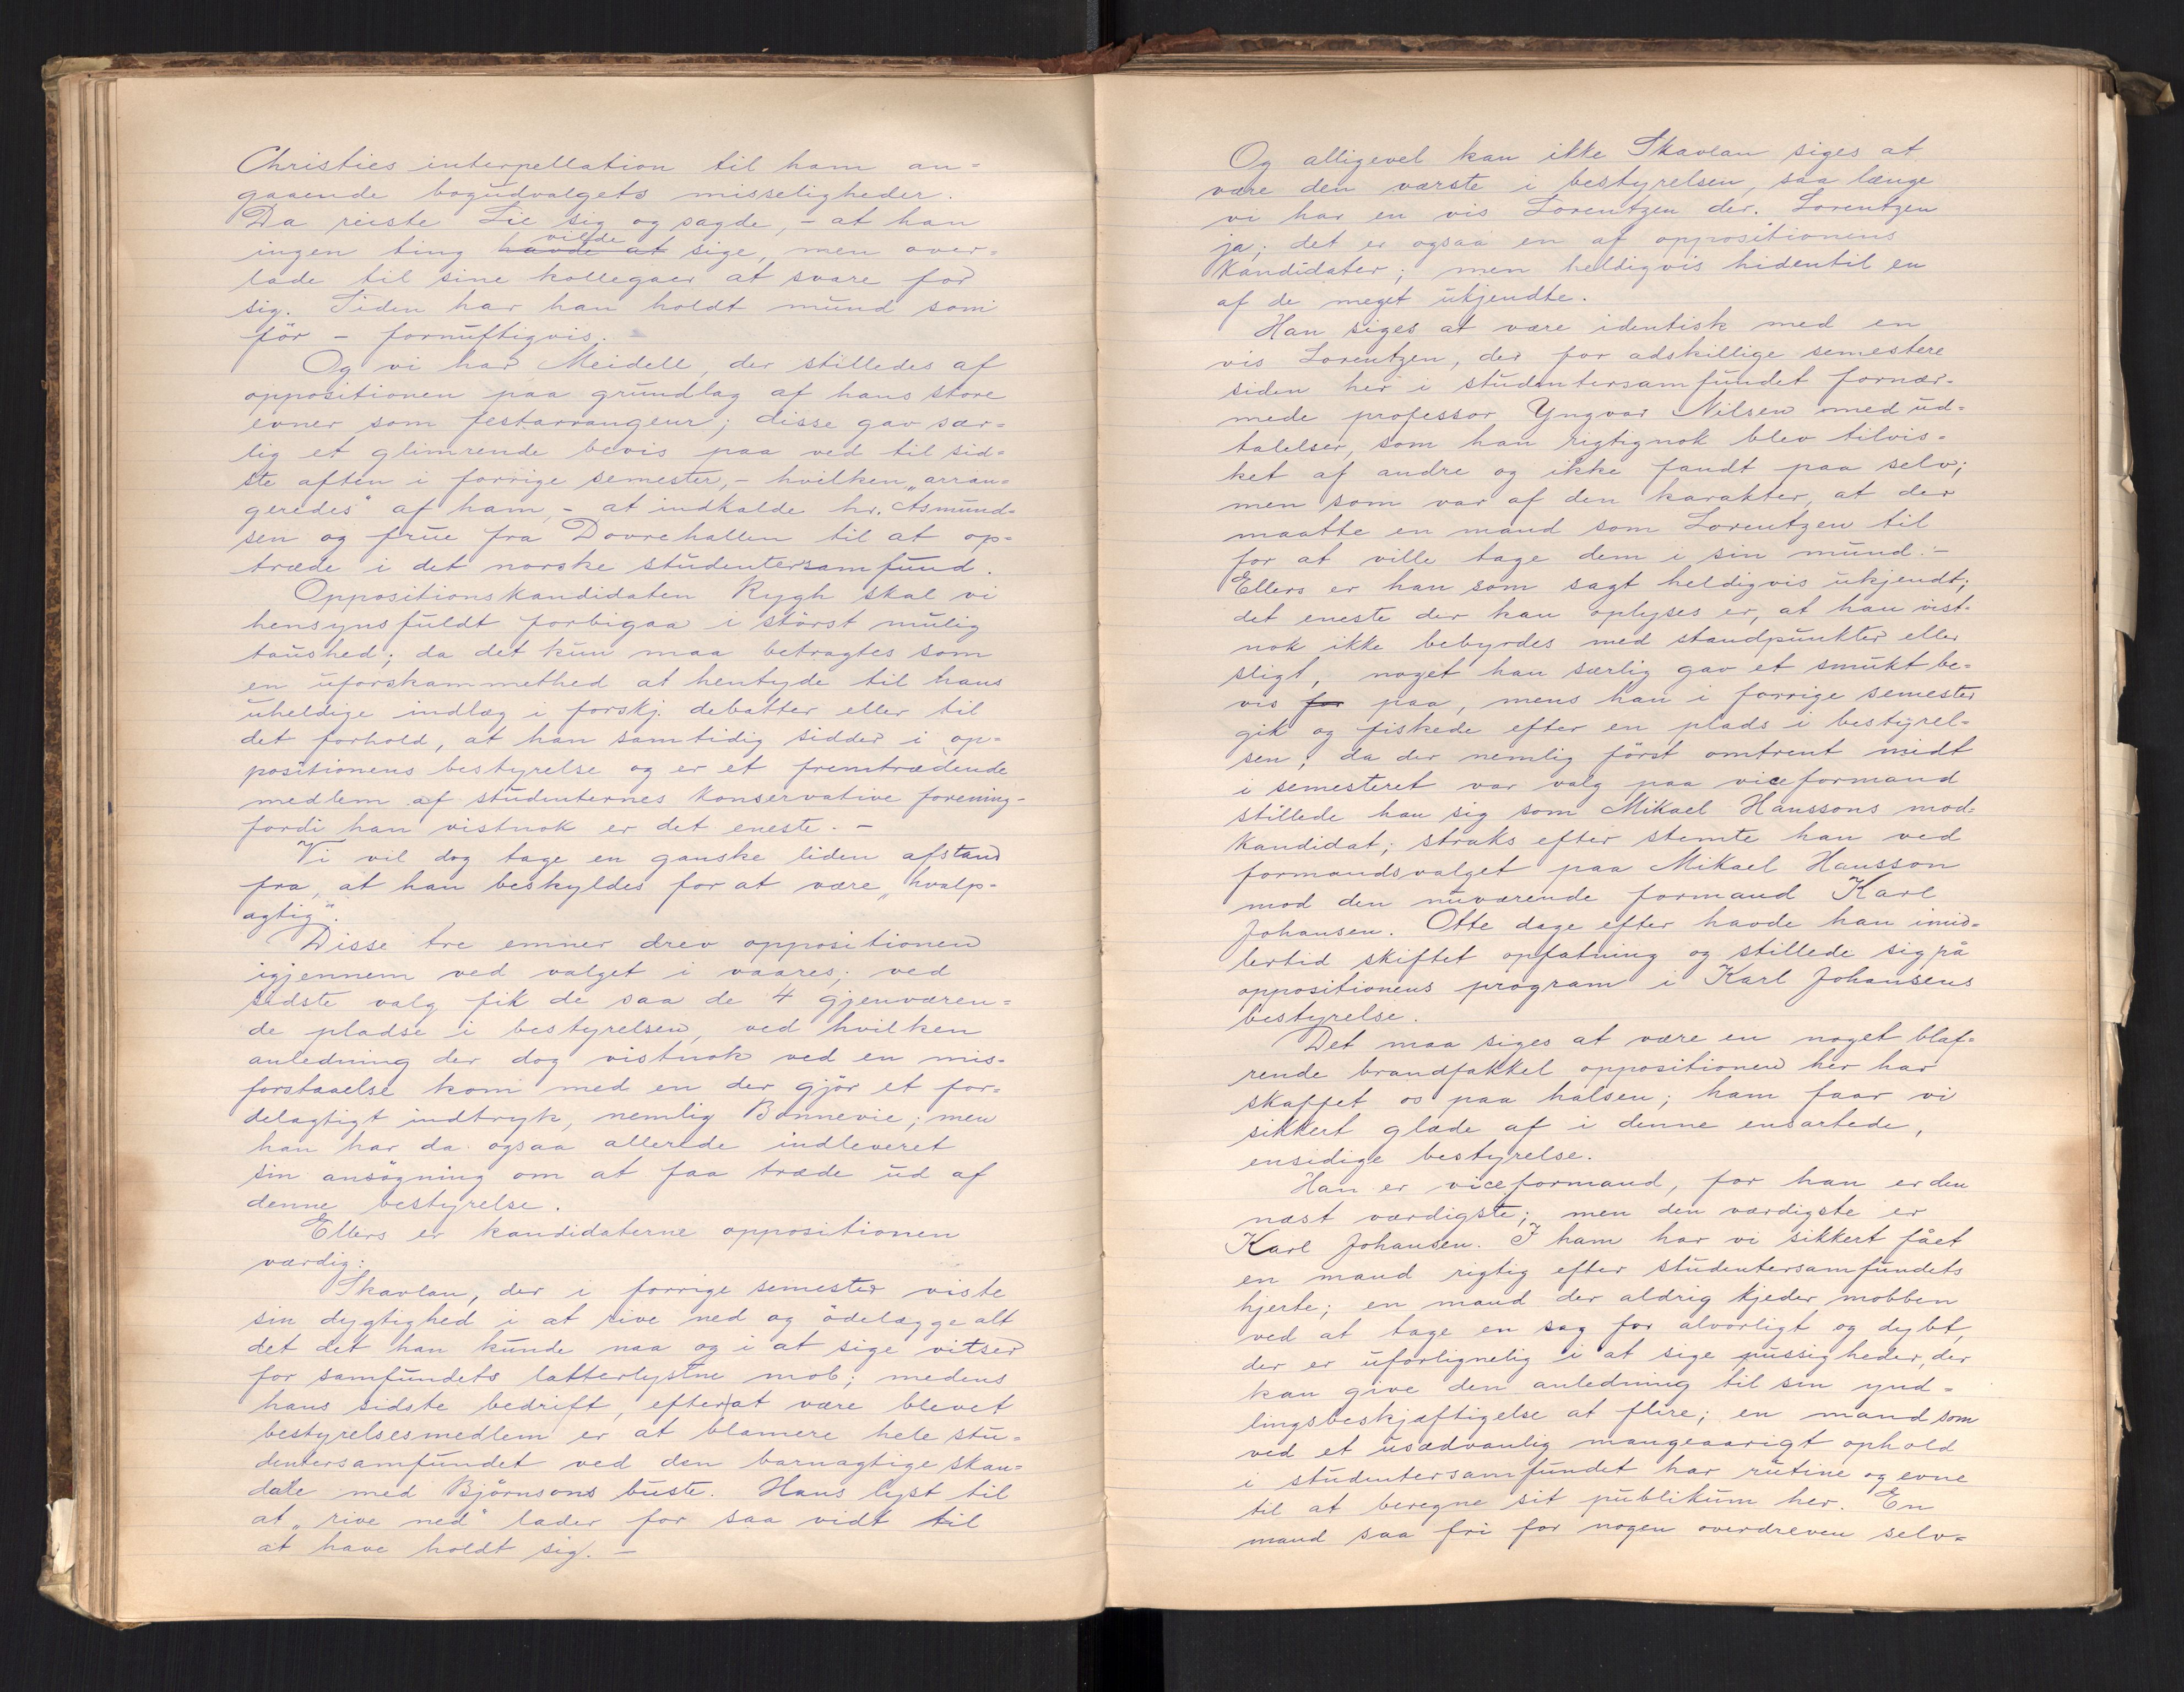 Christies interpellation til ham an=
gaaende bogudvalgets misseligheder.
Da reiste Lie sig og sagde, – at han
vilde
ingen ting havde at sige, men over=
lade til sine kollegaer at svare for
sig. Siden har han holdt mund som
før – fornuftigvis. –
Og vi har Meidell, der stilledes af
oppositionen paa grundlag af hans store
evner som festarrangeur; disse gav sær=
lig et glimrende bevis paa ved til sid=
ste aften i forrige semester, – hvilken „arran=
geredes" af ham, – at indkalde hr. Asmund=
sen og frue fra Dovrehallen til at op=
træde i det norske studentersamfund.
Oppositionskandidaten Rygh skal vi
hensynsfuldt forbigaa i størst mulig
taushed; da det kun maa betragtes som
en uforskammethed at hentyde til hans
uheldige indlæg i forskj. debatter eller til
det forhold, at han samtidig sidder i op=
positionens bestyrelse og er et fremtrædende
medlem af studenternes konservative forening –
fordi han vistnok er det eneste. –
Vi vil dog tage en ganske liden afstand
fra, at han beskyldes for at være „hvalp-
agtig".
Disse tre emner drev oppositionen
igjennem ved valget i vaares; ved
sidste valg fik de saa de 4 gjenværen=
de pladse i bestyrelsen, ved hvilken
anledning der dog vistnok ved en mis=
forstaaelse kom med en der gjør et for=
delagtigt indtryk, nemlig Bonnevie; men
han har da ogsaa allerede indleveret
sin ansøgning om at faa træde ud af
denne bestyrelse.
Ellers er kandidaterne oppositionen
værdig:
Skavlan, der i forrige semester viste
sin dygtighed i at rive ned og ödelægge alt
det det han kunde naa og i at sige vitser
for samfundets latterlystne mob; medens
hans sidste bedrift, efter at være blevet
bestyrelsesmedlem er at blamere hele stu=
dentersamfundet ved den barnagtige skan=
dale med Björnsons buste. Hans lyst til
at „rive ned" lader for saa vidt til
at have holdt sig. –
Og alligevel kan ikke Skavlan siges at
være den værste i bestyrelsen, saa længe
vi har en vis Lorentzen der. Lorentzen
ja; det er ogsaa en af oppositionens
kandidater; men heldigvis hidentil en
af de meget ukjendte.
Han siges at være identisk med en
vis Lorentzen, der for adskillige semestere
siden her i studentersamfundet fornær=
mede professor Yngvar Nilsen med ud=
talelser, som han rigtignok blev tilvis=
ket af andre og ikke fandt paa selv;
men som var af den karakter, at der
maatte en mand som Lorentzen til
for at ville tage dem i sin mund. –
Ellers er han som sagt heldigvis ukjendt;
det eneste der kan oplyses er, at han vist=
nok ikke bebyrdes med standpunkter eller
sligt, noget han særlig gav et smukt be=
vis for paa, mens han i forrige semester
gik og fiskede efter en plads i bestyrel=
sen; da der nemlig först omtrent midt
i semesteret var valg paa viceformand
stillede han sig som Mikael Hanssons mod=
kandidat; straks efter stemte han ved
formandsvalget paa Mikael Hansson
mod den nuværende formand Karl
Johansen. Otte dage efter havde han imid=
lertid skiftet opfatning og stillede sig på
oppositionens program i Karl Johansens
bestyrelse.
Det maa siges at være en noget blaf=
rende brandfakkel oppositionen her har
skaffet os paa halsen; ham faar vi
sikkert glæde af i denne ensartede,
ensidige bestyrelse.
Han er viceformand, for han er den
næst værdigste; men den værdigste er
Karl Johansen. I ham har vi sikkert fået
en mand rigtig efter studentersamfundets
hjerte; en mand der aldrig kjeder mobben
ved at tage en sag for alvorligt og dybt,
der er uforlignelig i at sige pussigheder, der
kan give den anledning til sin ynd=
lingsbeskjæftigelse at flire; en mand som
ved et usædvanlig mangeaarigt ophold
i studentersamfundet har rutine og evne
til at beregne sit publikum her. En
mand saa fri for nogen overdreven selv=